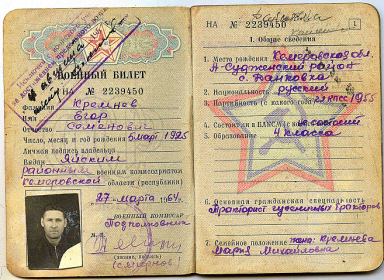 ВОЕННЫЙ БИЛЕТ
НА № 2239450
Фамилия Кремнев
Имя Егор
Отчество Семенович
Число, месяц и год рождения 5 март 1925
Личная подпись владельца
Выдан Яйским
районным военным комиссариатом
Кемеровской области (республики)
27 марта 1964 г.
ВОЕННЫЙ КОМИССАР
Подполковник
НА № 2239450
1
I. Общие сведения
1. Место рождения Кемеровская обл.
А-Судженский район
с. Данковка
2. Национальность русский
3. Партийность (с какого года)
1955
4. Состоит ли в ВЛКСМ (с какого не состоит
5. Образование 4 класса
6. Основная гражданская специальность
Тракторист гусеничных тракторов
7. Семейное положение жена: Кремнева
Мария Михайловна